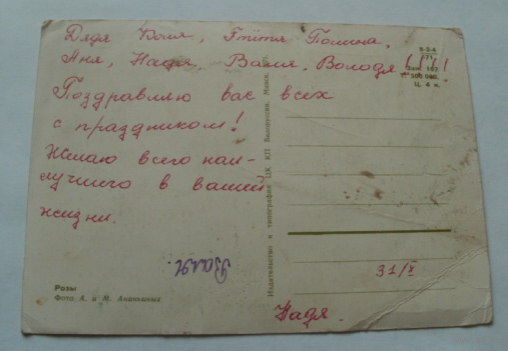 Дядя Коля, Тётя Полина,
Аня, Надя, Валя, Володя!!!!
Поздравляю вас всех
с праздником!
Желаю всего наи-
лучшего в вашей
жизни.
Валя.
31/X
Надя.
Розы
Фото А. и М. Ананьиных
Издательство и типография ЦК КП Белоруссии. Минск.
8-2-4
71
Зак. 197
500 000.
Ц. 4 к.